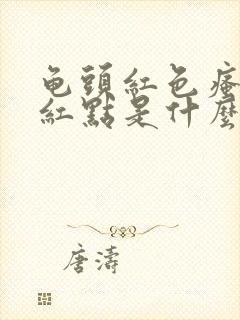 龟頭紅色瘙
紅點是什麼
唐濤